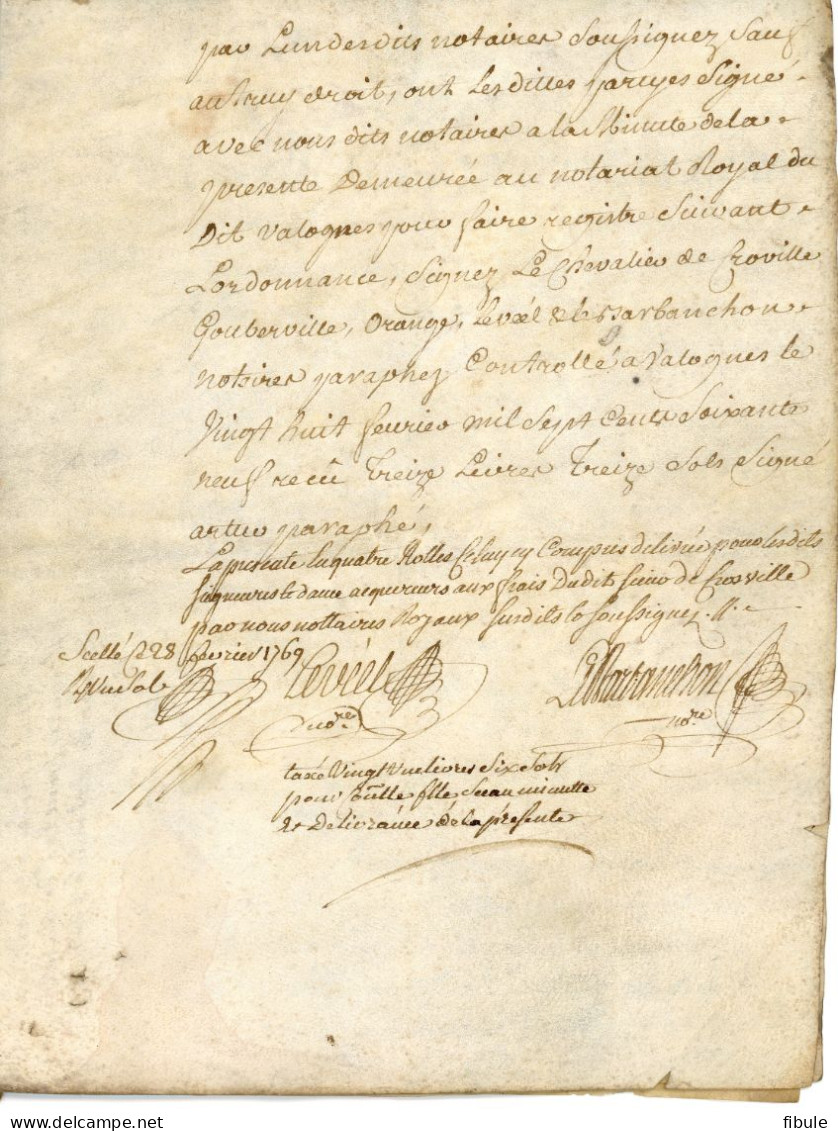 par L'un desdits notaires Soussignez Sauf
autruy droit, ont Lesdittes partyes Signé
avec nous dits notaires a la Minute de la
presente Demeurée au notariat Royal du
Dit Valognes pour faire registre Suivant
Lordonnance, Signez Le Chevalier de Croville
Gouberville, Orange, Leveél & le Marbanchon
notaires paraphez Controllé a Valognes le
Vingt huit fevrier mil Sept Cents Soixante
neuf reçû Treize Livres Treize Sols Signé
paraphé,
La presente en quatre Rolles Celuy cy Compris delivrée pour lesdits
Seigneur et dame acquereurs aux frais Dudit sieur de Crosville
par nous nottaires Royaux susdits Soussignez
Scellé Ce 28 fevrier 1769
Sols
Leveél
LeMarbanchon
nore
nore
taxé Vingt Une livres Six Sols
pour minutte
et Delivrance de la présente
fibule